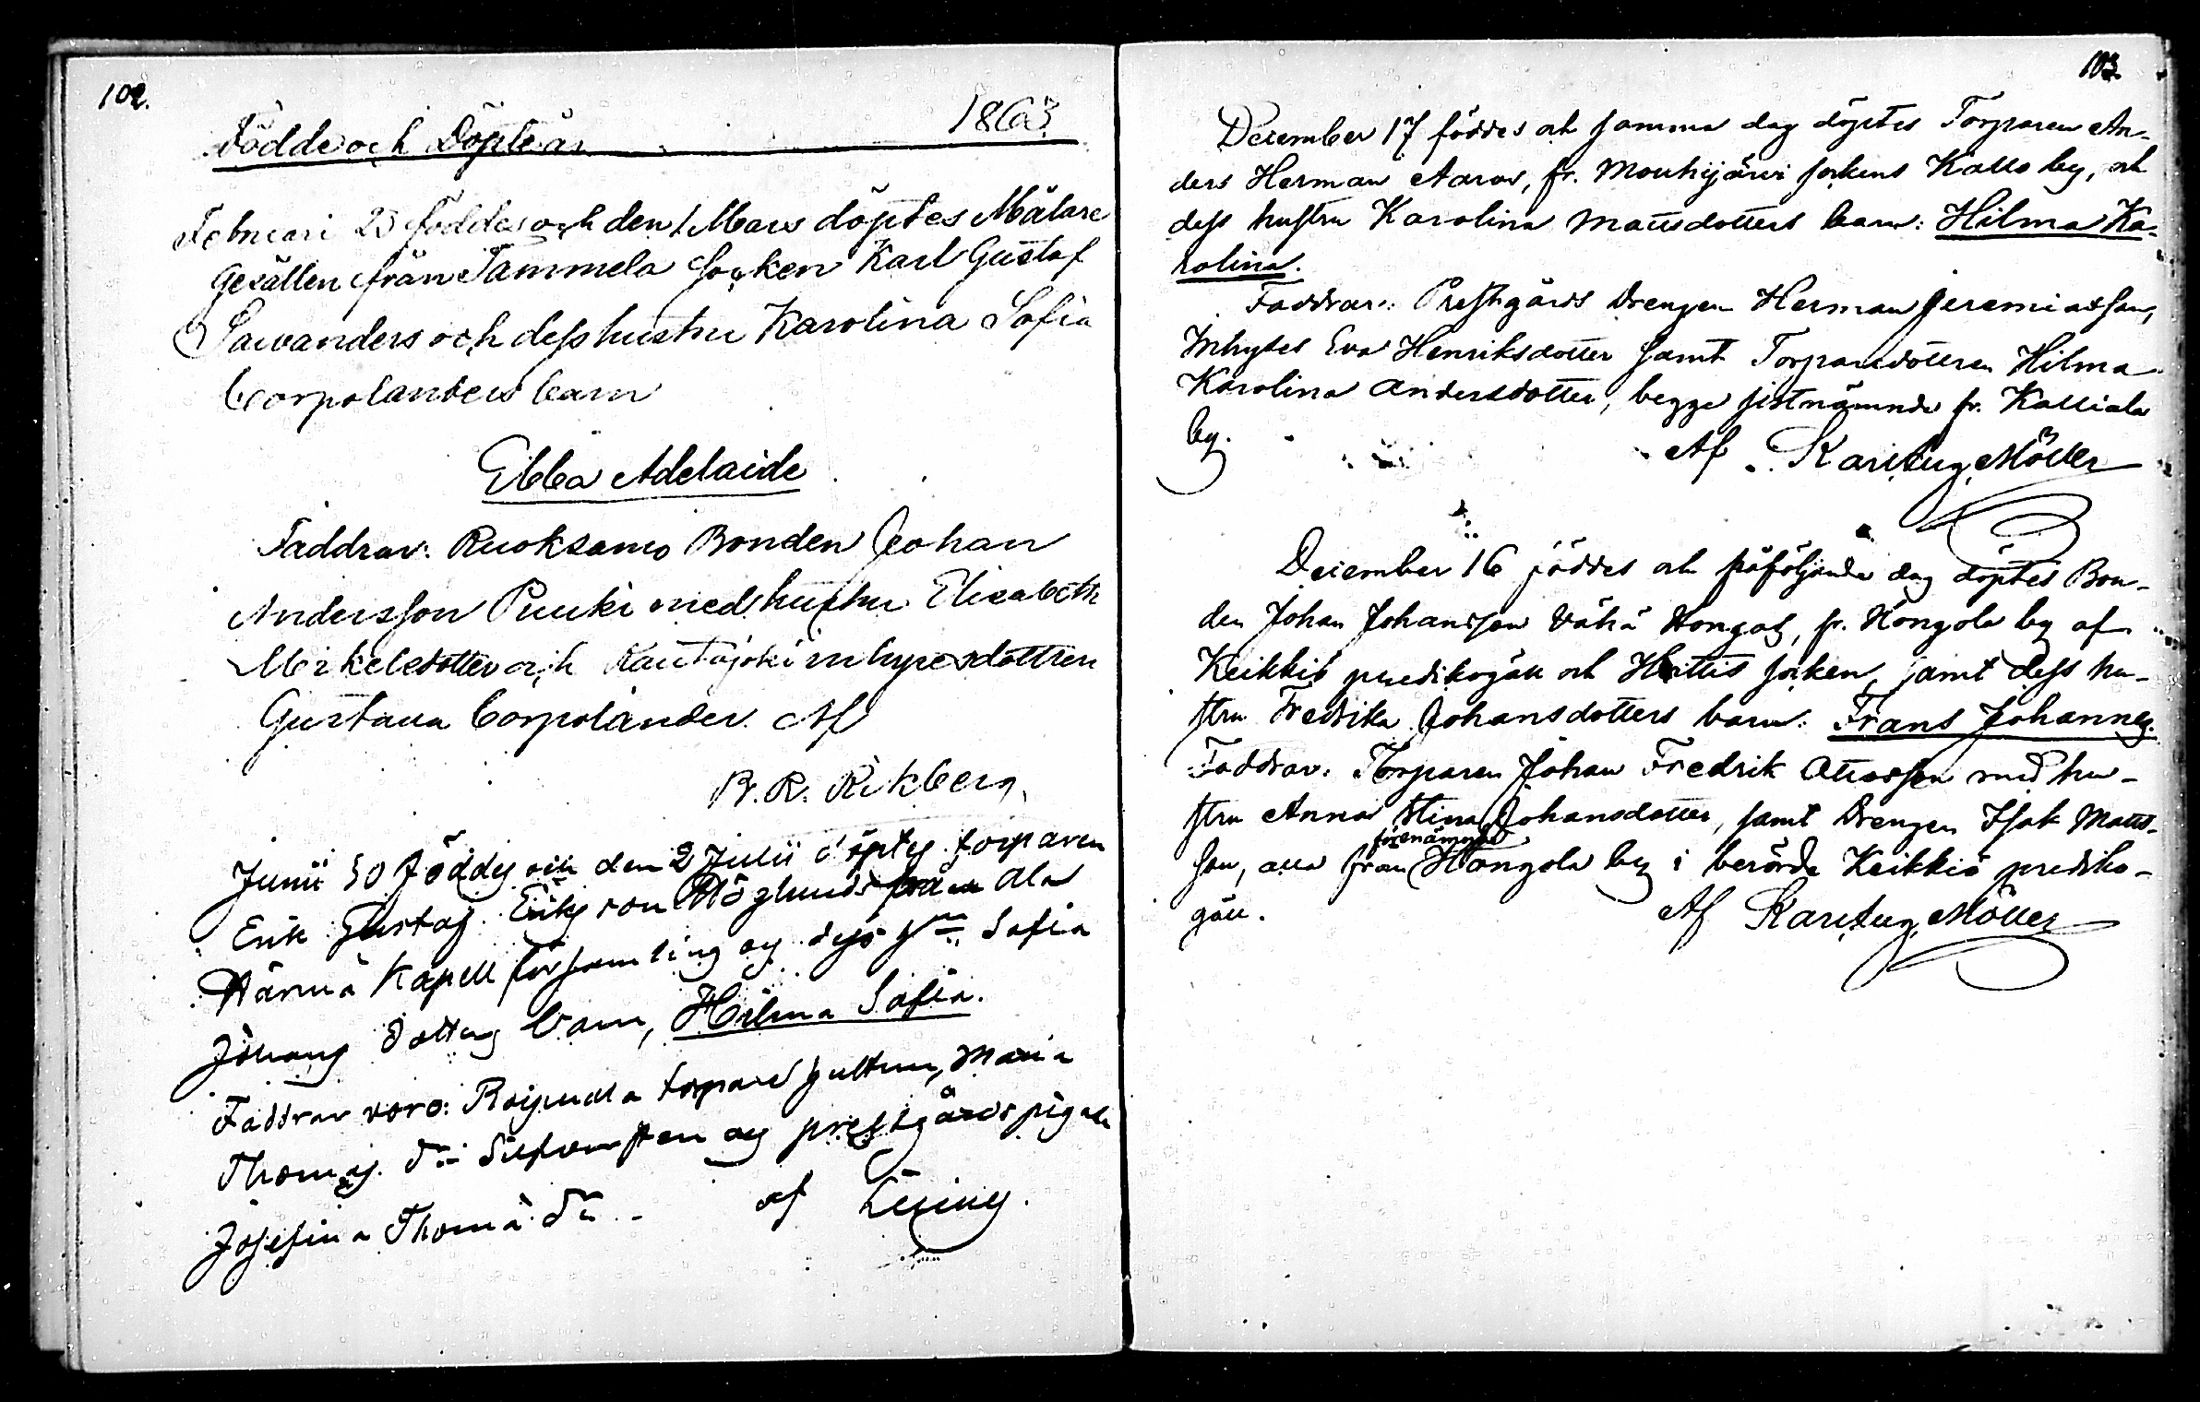 102.
Födde och Döpte år 1863
Februari 23 föddes och den 1 Mars döptes Målare
Gesällen från Tammela Socken Karl Gustaf
Sawanders och dess hustru Karolina Sofia
Corpolanders barn
Ebba Adelaide
Faddrar: Ruoksamo Bonden Johan
Andersson Puuki med hustru Elisabeth
Mikelsdotter och Kautajoki inhysesdottren
Gustava Corpolander. Af
B. R. Rikberg.
Junii 30 föddes och den 2 Julii döptes torparen
Erik Gustaf Eriksson Höglunds från Ala
Härmä Kapell församling og dess h:u Sofia
Johans dotters barn, Hilma Sofia.
Faddrar voro: torpare hustrun, Maria
Thomas d:r og prestgårds pigan
Josefina Thomä d:r. af
103.
December 17 föddes och samma dag döptes Torparen An-
ders Herman Aaros, fr. Mouhijärvi sockens Kallo by, och
dess hustru Karolina Mattsdotters barn: Hilma Ka-
rolina.
Faddrar: Prestgårds Drengen Herman Jeremiasson,
Inhyses Eva Henriksdotter samt Torparedottren Hilma
Karolina Andersdotter, begge sistnämnde fr. Kalliala
by. Af Karl Aug. Möller
December 16 föddes och påföljande dag döptes Bon-
den Johan Johansson Vähä Hongas, fr. Hongola by af
Keikkis predikogäll och Huittis socken, samt dess hu-
stru Fredrika Johansdotters barn: Frans Johannes.
Faddrar: Torparen Johan Fredrik Ottosson med hu-
stru Anna Stina Johansdotter, samt Drengen Isak Matts-
son, alla från förenämnde Hongola by i berörde Keikkis prediko-
gäll. Af Karl Aug. Möller